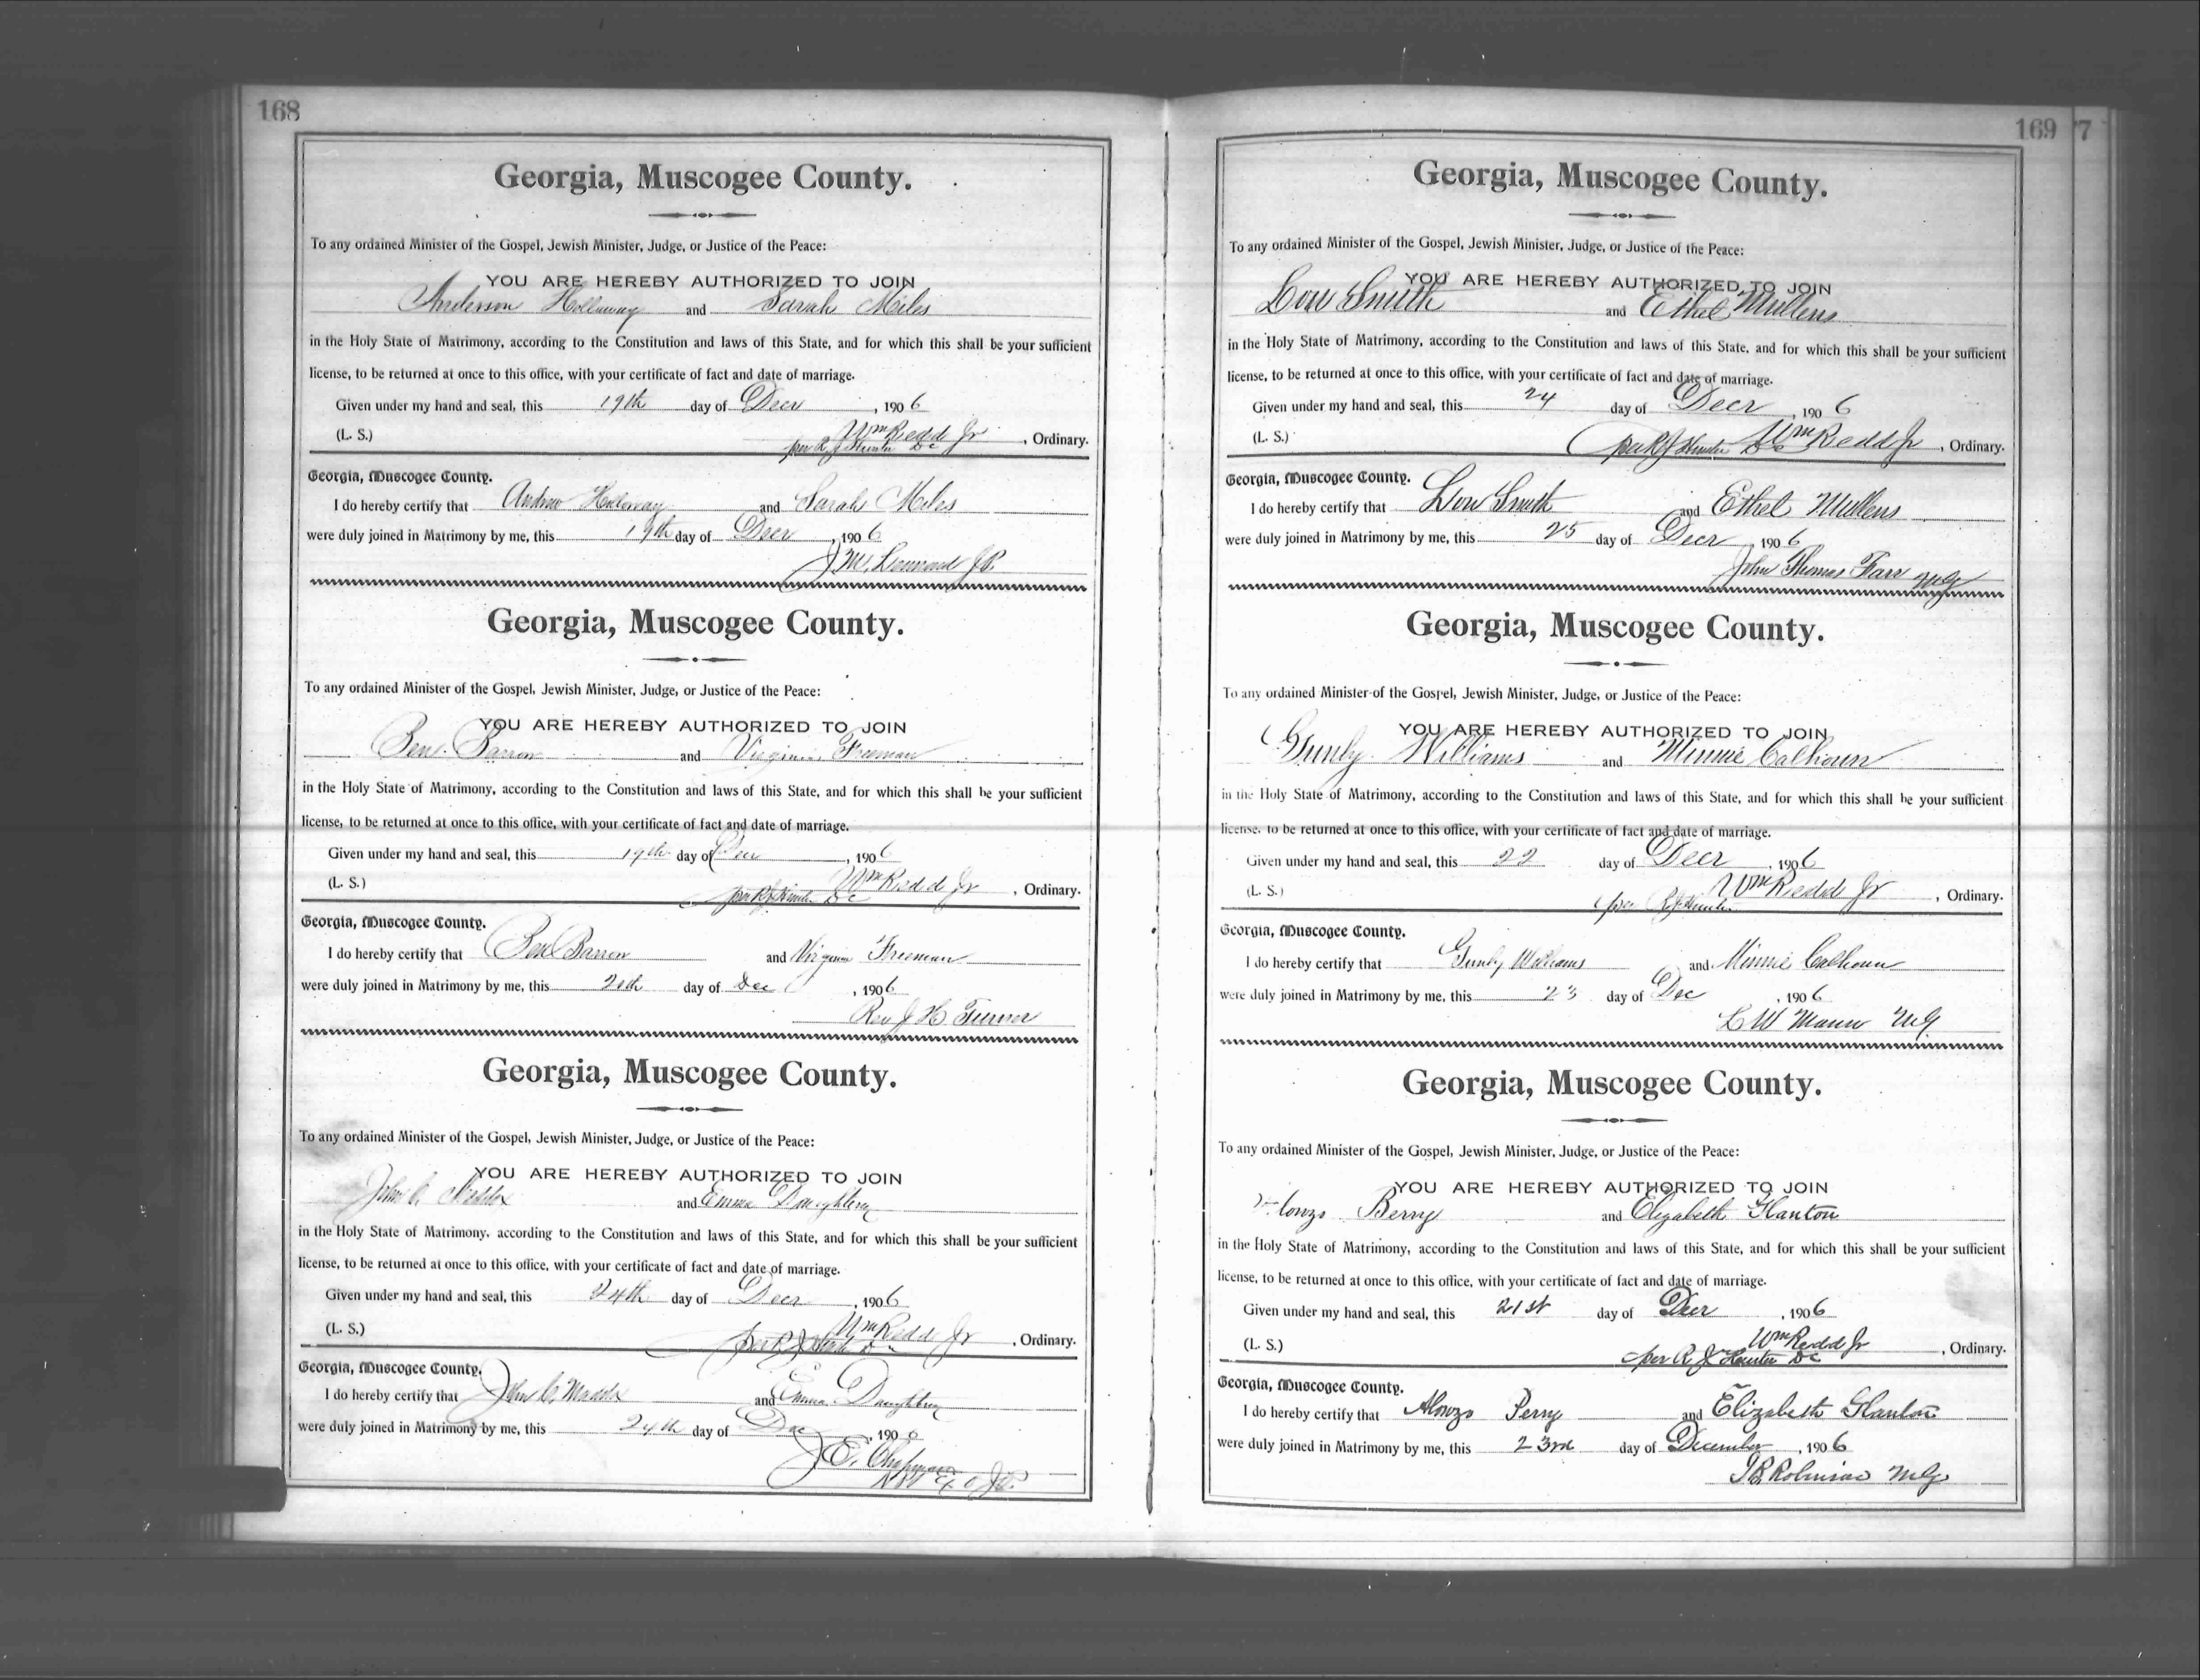 168
Georgia, Muscogee County.
To any ordained Minister of the Gospel, Jewish Minister, Judge, or Justice of the Peace:
YOU ARE HEREBY AUTHORIZED TO JOIN
Anderson Holloway and Sarah Miles
in the Holy State of Matrimony, according to the Constitution and laws of this State, and for which this shall be your sufficient
license, to be returned at once to this office, with your certificate of fact and date of marriage.
Given under my hand and seal, this 19th day of Decr, 1906
Wm Redd Jr
(L. S.) per R J Hunter DC, Ordinary.
Georgia, Muscogee County.
I do hereby certify that Andrew Holloway and Sarah Miles
were duly joined in Matrimony by me, this 19th day of Decr, 1906
J.P.
Georgia, Muscogee County.
To any ordained Minister of the Gospel, Jewish Minister, Judge, or Justice of the Peace:
YOU ARE HEREBY AUTHORIZED TO JOIN
Ben. Barron and Virginia Freeman
in the Holy State of Matrimony, according to the Constitution and laws of this State, and for which this shall be your sufficient
license, to be returned at once to this office, with your certificate of fact and date of marriage.
Given under my hand and seal, this 19th day of Decr, 1906
Wm Redd Jr
(L. S.) per R J Hunter DC, Ordinary.
Georgia, Muscogee County.
I do hereby certify that Ben Barron and Virginia Freeman
were duly joined in Matrimony by me, this 20th day of Dec, 1906
Rev J H Turner
Georgia, Muscogee County.
To any ordained Minister of the Gospel, Jewish Minister, Judge, or Justice of the Peace:
YOU ARE HEREBY AUTHORIZED TO JOIN
John C. Maddox and Emma Daughtry
in the Holy State of Matrimony, according to the Constitution and laws of this State, and for which this shall be your sufficient
license, to be returned at once to this office, with your certificate of fact and date of marriage.
Given under my hand and seal, this 24th day of Decr, 1906
Wm Redd Jr
(L. S.) per R J Hunter DC, Ordinary.
Georgia, Muscogee County.
I do hereby certify that John C. Maddox and Emma Daughtry
were duly joined in Matrimony by me, this 24th day of Dec, 1906
J. E. Chapman
N.P. & Ex O J.P.
169
7
Georgia, Muscogee County.
To any ordained Minister of the Gospel, Jewish Minister, Judge, or Justice of the Peace:
YOU ARE HEREBY AUTHORIZED TO JOIN
Lou Smith and Ethel Mullens
in the Holy State of Matrimony, according to the Constitution and laws of this State, and for which this shall be your sufficient
license, to be returned at once to this office, with your certificate of fact and date of marriage.
Given under my hand and seal, this 24 day of Decr, 1906
(L. S.) per R J Hunter DC Wm Redd Jr, Ordinary.
Georgia, Muscogee County.
I do hereby certify that Lou Smith and Ethel Mullens
were duly joined in Matrimony by me, this 25 day of Decr, 1906
John Thomas Farr MG
Georgia, Muscogee County.
To any ordained Minister of the Gospel, Jewish Minister, Judge, or Justice of the Peace:
YOU ARE HEREBY AUTHORIZED TO JOIN
Gunby Williams and Minnie Calhoun
in the Holy State of Matrimony, according to the Constitution and laws of this State, and for which this shall be your sufficient
license, to be returned at once to this office, with your certificate of fact and date of marriage.
Given under my hand and seal, this 22 day of Decr, 1906
Wm Redd Jr
(L. S.) per R J Hunter, Ordinary.
Georgia, Muscogee County.
I do hereby certify that Gunby Williams and Minnie Calhoun
were duly joined in Matrimony by me, this 23 day of Dec, 1906
L W Mann MG.
Georgia, Muscogee County.
To any ordained Minister of the Gospel, Jewish Minister, Judge, or Justice of the Peace:
YOU ARE HEREBY AUTHORIZED TO JOIN
Alonzo Berry and Elizabeth Glanton
in the Holy State of Matrimony, according to the Constitution and laws of this State, and for which this shall be your sufficient
license, to be returned at once to this office, with your certificate of fact and date of marriage.
Given under my hand and seal, this 21st day of Decr, 1906
Wm Redd Jr
(L. S.) per R J Hunter DC, Ordinary.
Georgia, Muscogee County.
I do hereby certify that Alonzo Perry and Elizabeth Glanton
were duly joined in Matrimony by me, this 23rd day of December, 1906
J B Robinson MG